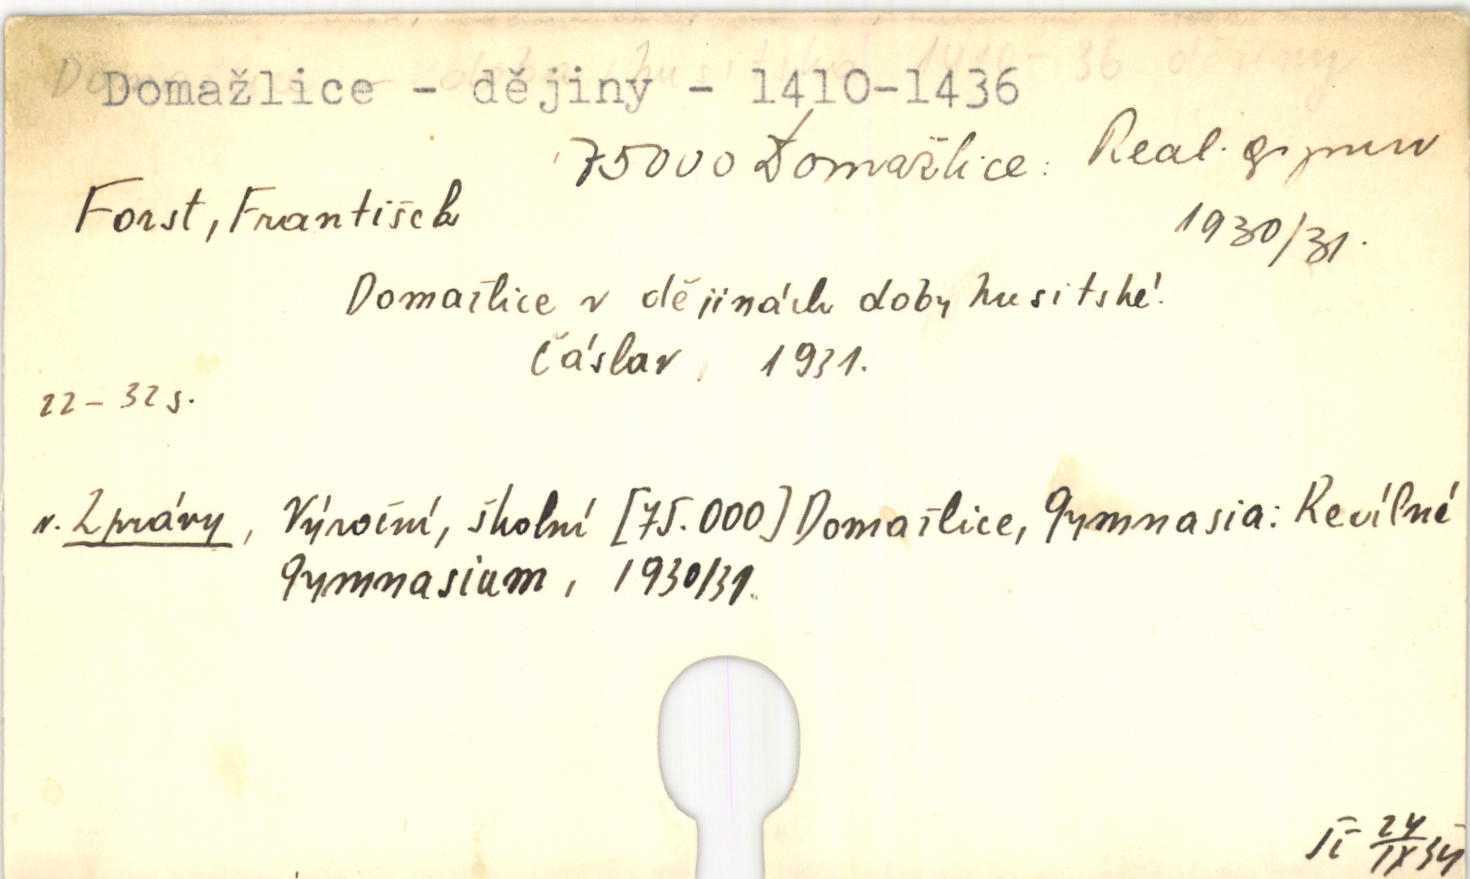 Domažlice - dějiny - 1410-1436
75000 Domažlice: Real. gymn
Forst, František
1930/31.
Domažlice v dějinách doby husitské.
Čáslav, 1931.
22-32 s.
v. Zprávy, Výroční, školní [75.000] Domažlice, Gymnasia: Reálné
Gymnasium, 1930/31.
24/IX 34